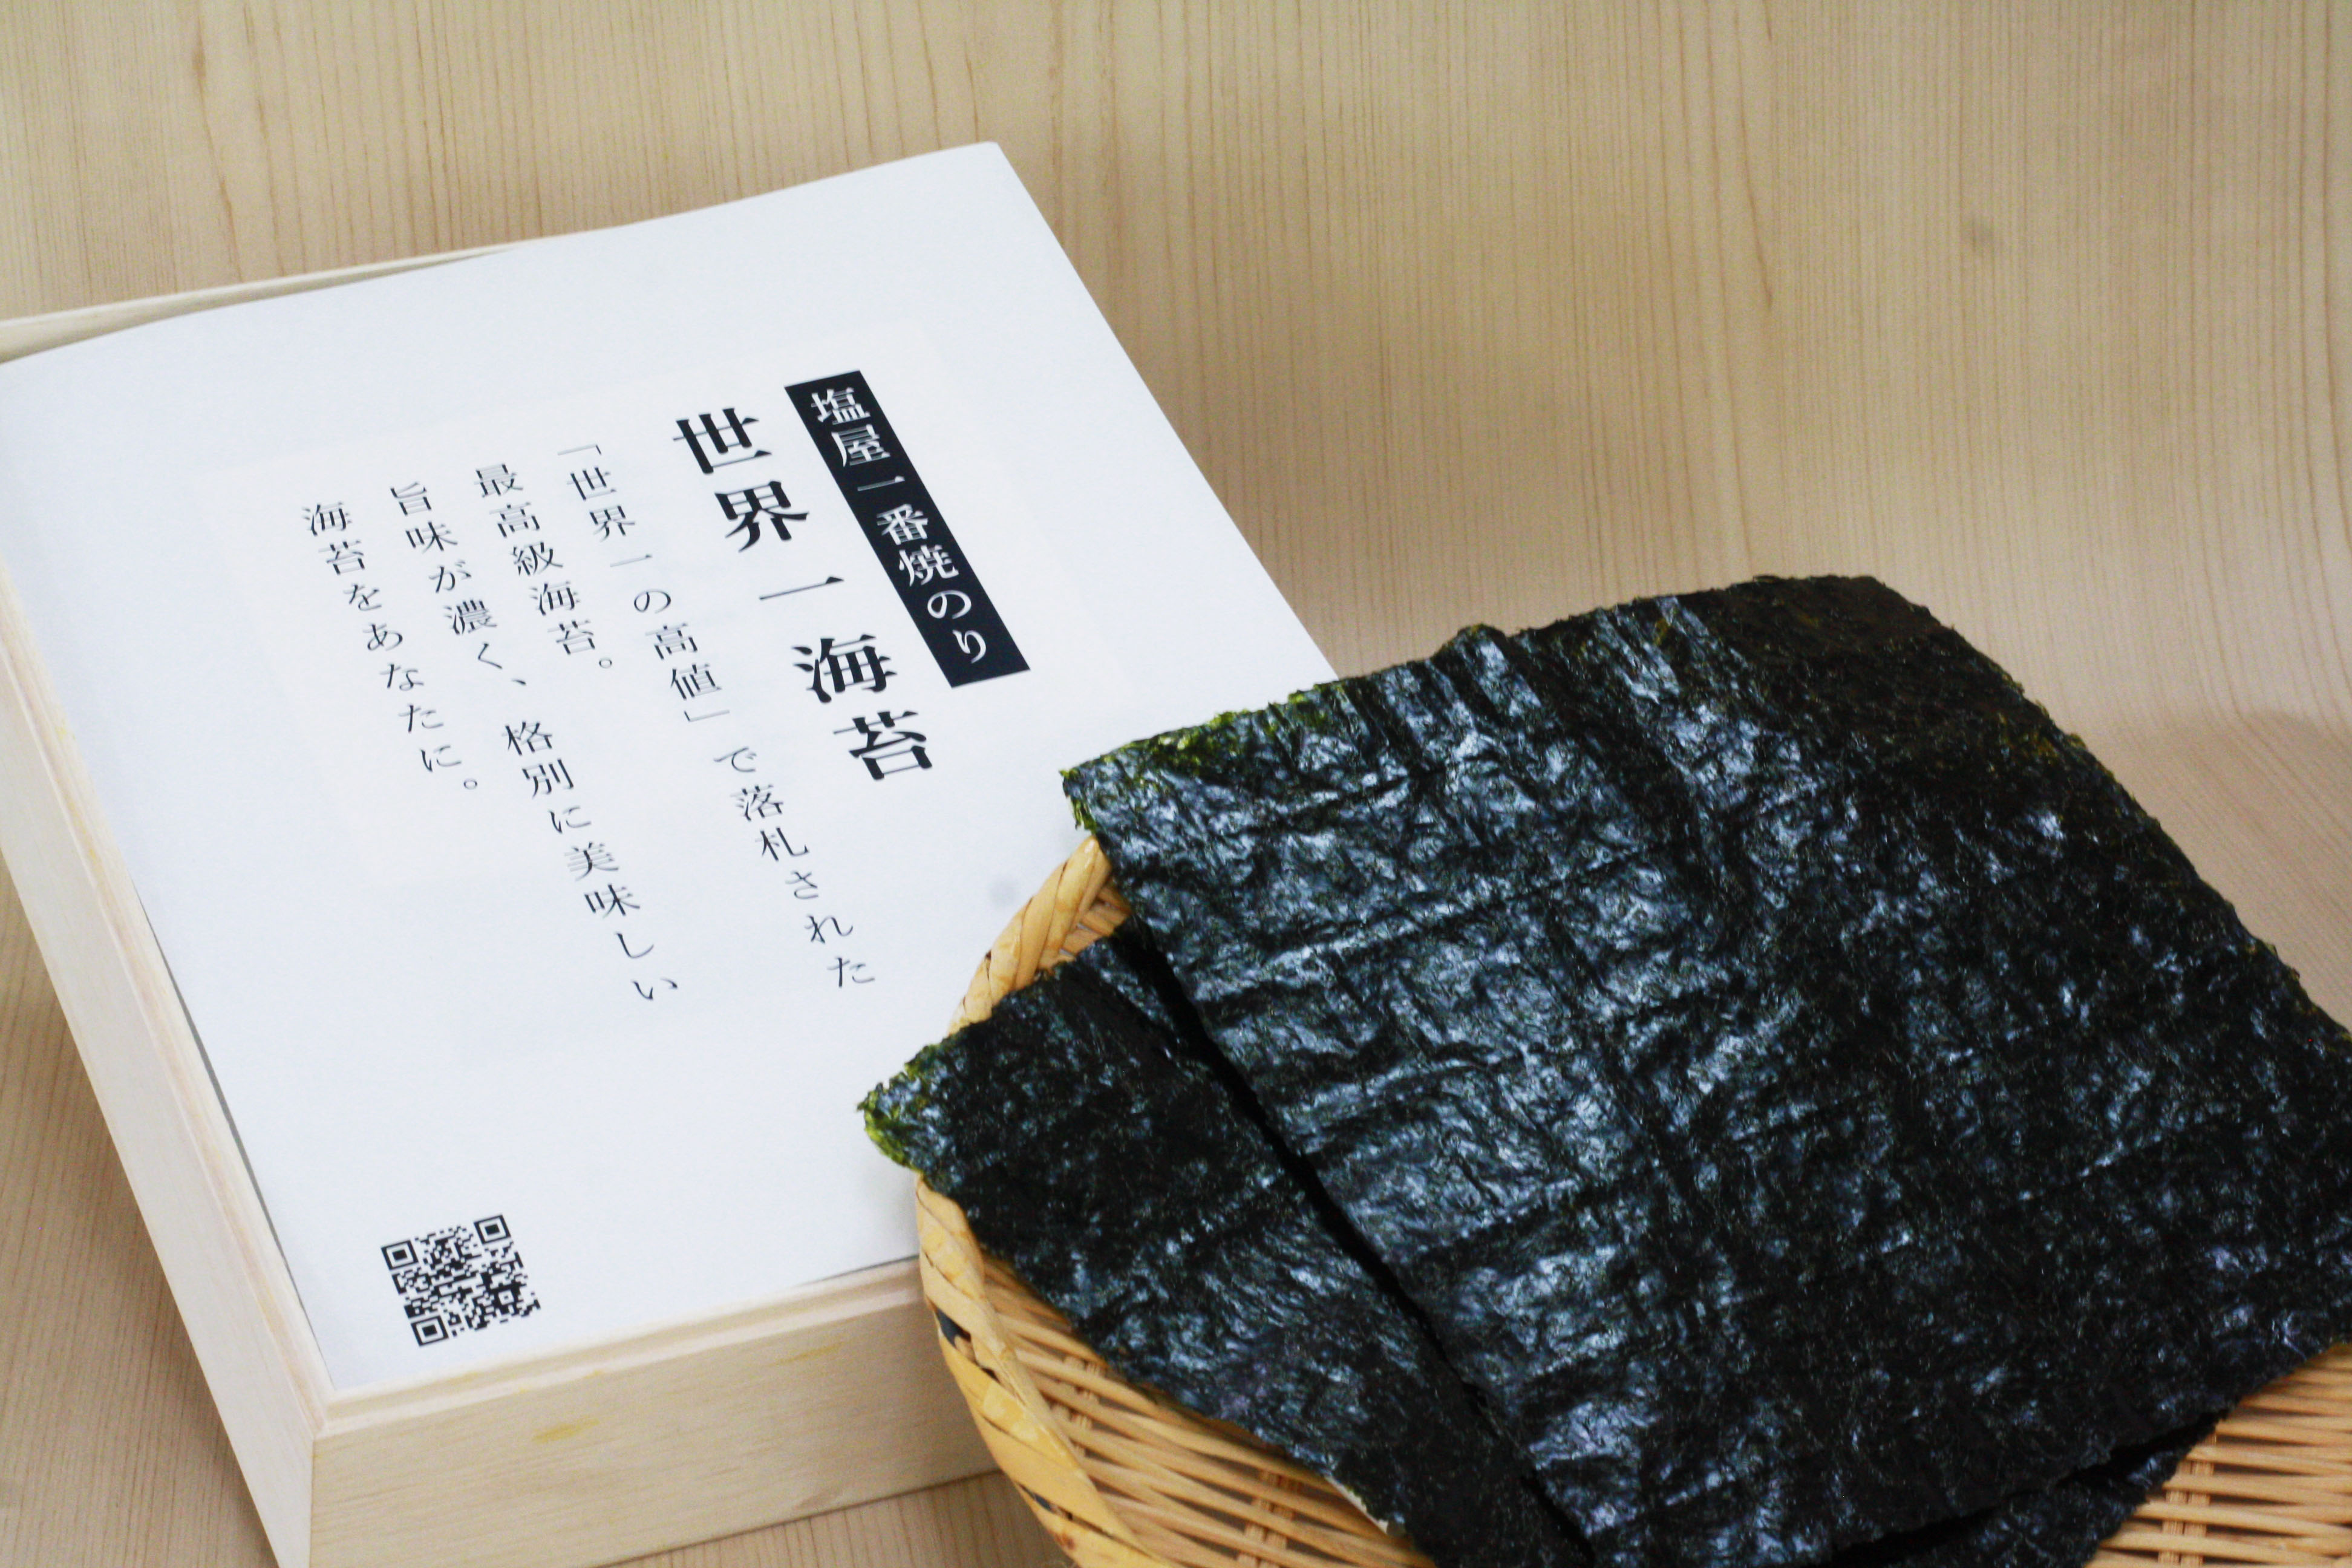 塩屋一番焼のり
世界一海苔
「世界一の高値」で落札された
最高級海苔。
旨味が濃く、格別に美味しい
海苔をあなたに。